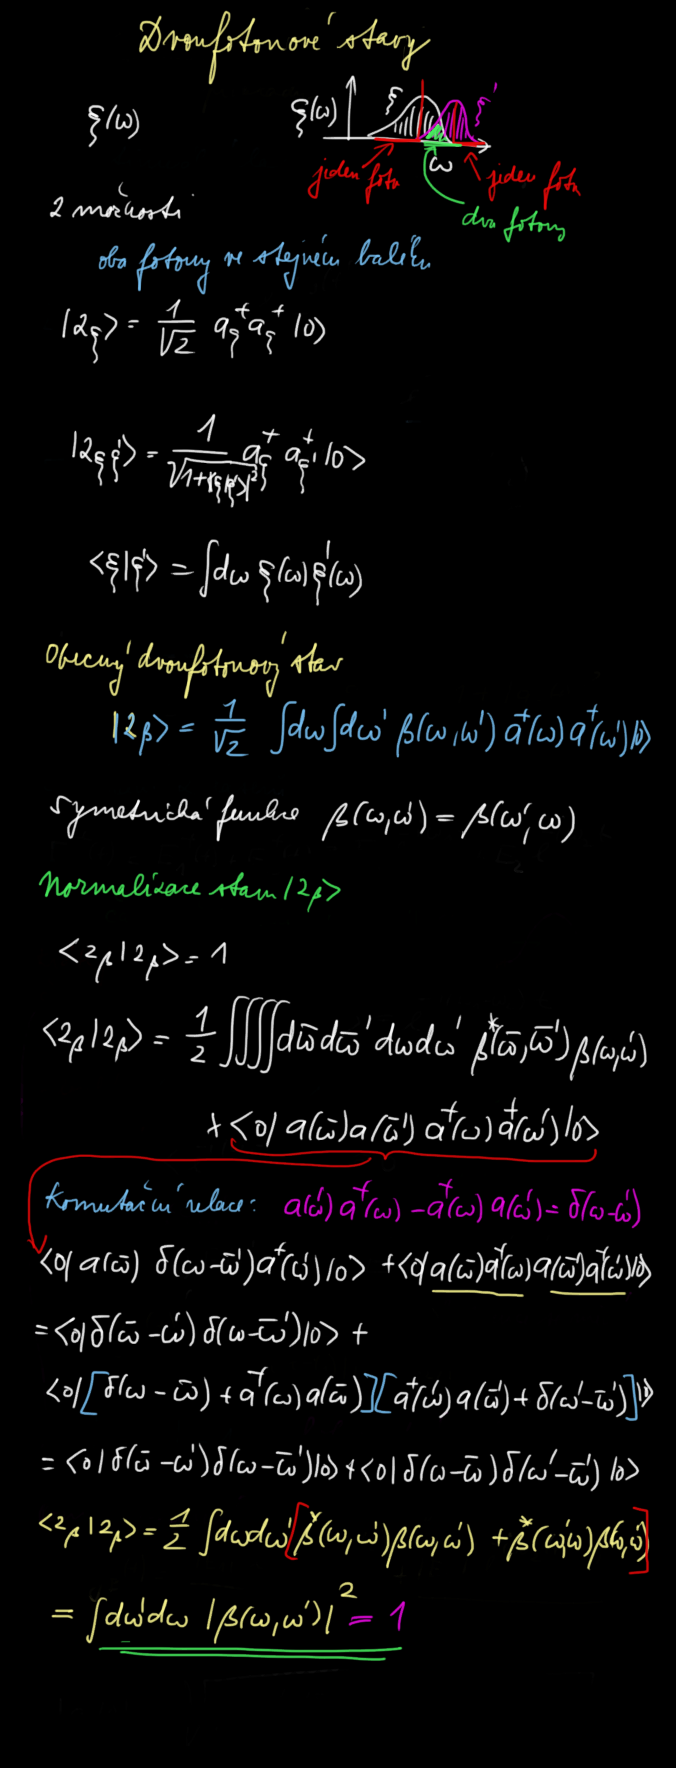 Dvoufotonové stavy
ξ(ω)
ξ(ω) ξ ξ'
jeden foto ω jeden foto
2 možnosti
dva fotony
oba fotony ve stejném balíku
|2ξ⟩ = 1/√2 a_ξ^+ a_ξ^+ |0⟩
|2ξξ'⟩ = 1/√(1+|⟨ξ|ξ'⟩|²) a_ξ^+ a_ξ'^+ |0⟩
⟨ξ|ξ'⟩ = ∫dω ξ(ω) ξ'(ω)
Obecný dvoufotonový stav
|2β⟩ = 1/√2 ∫dω∫dω' β(ω,ω') a^+(ω) a^+(ω')|0⟩
Symetrická funkce β(ω,ω') = β(ω',ω)
Normalizace stavu |2β⟩
⟨2β|2β⟩ = 1
⟨2β|2β⟩ = 1/2 ∫∫∫∫dω̄dω̄'dωdω' β*(ω̄,ω̄')β(ω,ω')
× ⟨0| a(ω̄)a(ω̄') a^+(ω)a^+(ω')|0⟩
Komutační relace: a(ω')a^+(ω) - a^+(ω)a(ω') = δ(ω-ω')
⟨0| a(ω̄) δ(ω-ω̄')a^+(ω')|0⟩ + ⟨0|a(ω̄)a^+(ω)a(ω̄')a^+(ω')|0⟩
= ⟨0|δ(ω̄-ω')δ(ω-ω̄')|0⟩ +
⟨0|[δ(ω-ω̄) + a^+(ω)a(ω̄)][a^+(ω')a(ω̄') + δ(ω'-ω̄')]|0⟩
= ⟨0|δ(ω̄-ω')δ(ω-ω̄')|0⟩ + ⟨0|δ(ω-ω̄)δ(ω'-ω̄')|0⟩
⟨2β|2β⟩ = 1/2 ∫dωdω'[β*(ω,ω')β(ω,ω') + β*(ω',ω)β(ω,ω')]
= ∫dω'dω |β(ω,ω')|² = 1